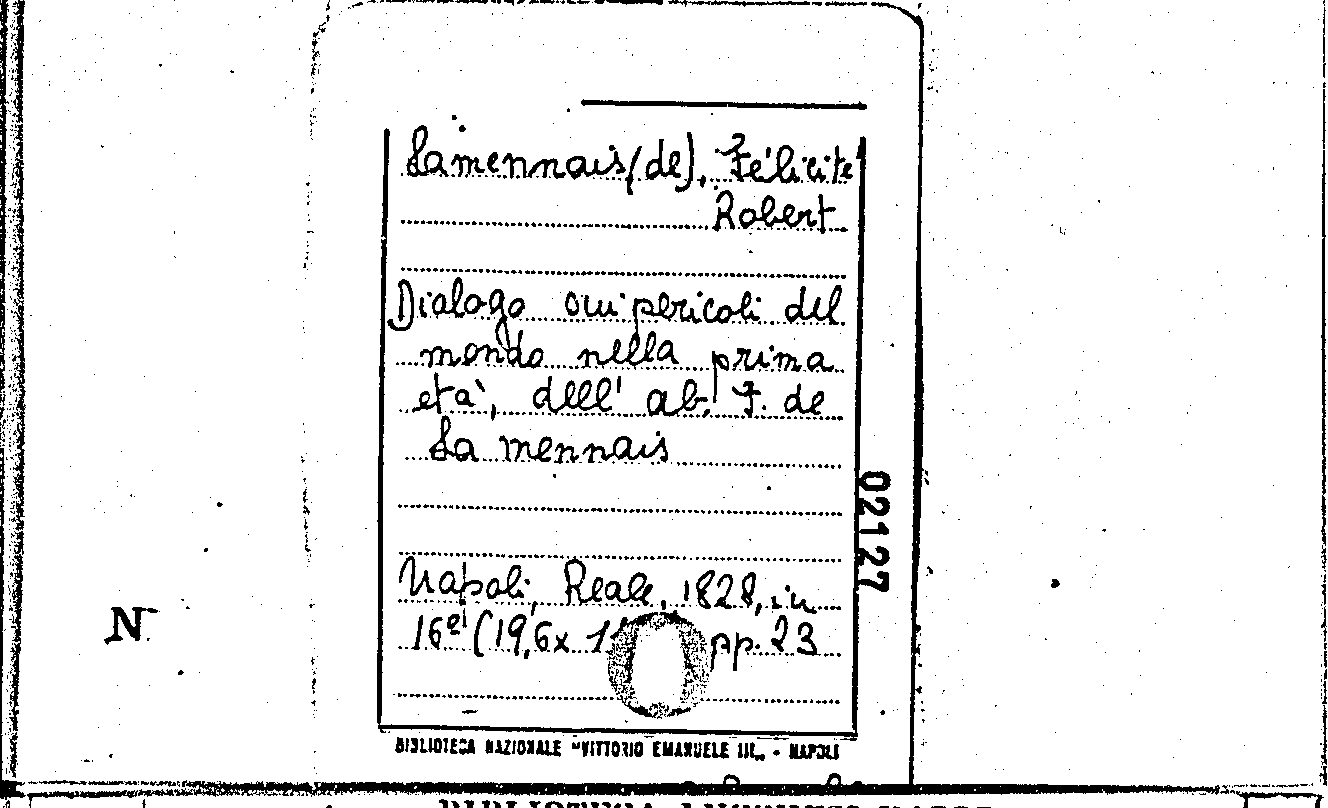 Lamennais (de), Félicité
Robert
Dialogo sui pericoli del
mondo nella prima
età, dell' ab. F. de
La mennais
Napoli, Reale, 1828, in
16º (19,6x pp. 23
02127
N
BIBLIOTECA NAZIONALE "VITTORIO EMANUELE III„ - NAPOLI